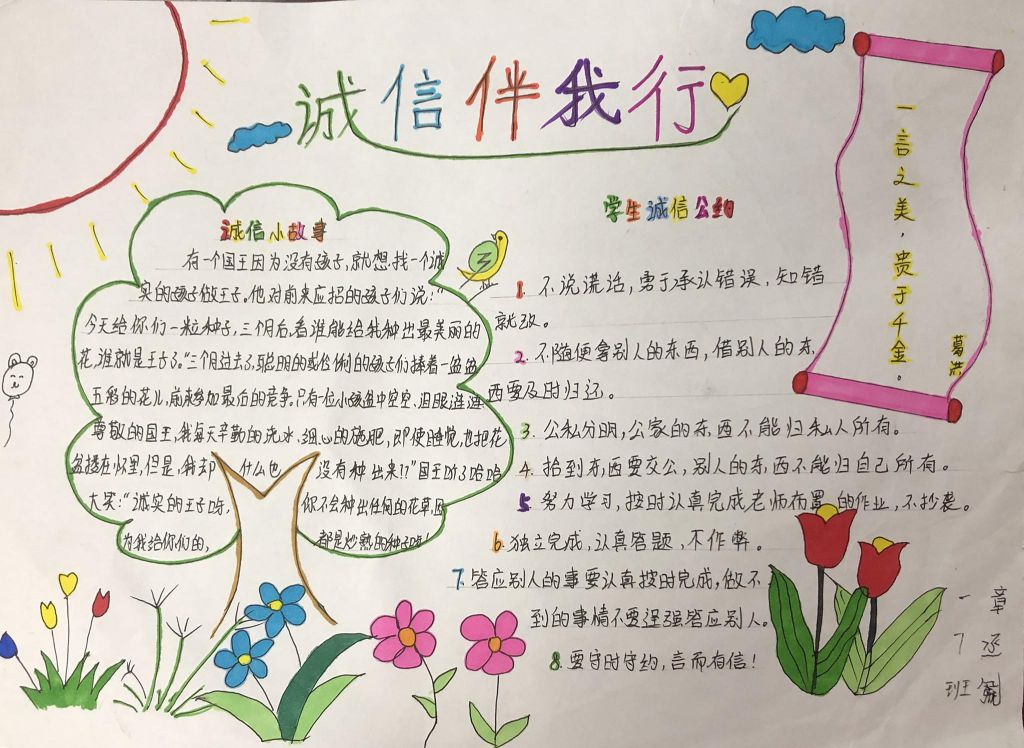 诚信伴我行
一言之美，贵于千金。
葛洪
诚信小故事
有一个国王因为没有孩子，就想找一个诚
实的孩子做王子。他对前来应招的孩子们说：“
今天给你们一粒种子，三个月后，看谁能给我种出最美丽的
花，谁就是王子了。”三个月过去了，聪明的或伶俐的孩子们捧着一盆盆
五彩的花儿，前来参加最后的竞争。只有一位小孩盆中空空、泪眼涟涟
尊敬的国王，我每天辛勤的浇水、细心的施肥，即使睡觉，也把花
盆搂在怀里，但是，我却 什么也 没有种出来!?”国王听了哈哈
大笑：“诚实的王子呀， 你不会种出任何的花草，因
为我给你们的， 都是炒熟的种子呀！
学生诚信公约
1. 不说谎话，勇于承认错误，知错
就改。
2. 不随便拿别人的东西，借别人的东
西要及时归还。
3. 公私分明，公家的东西不能归私人所有。
4. 拾到东西要交公，别人的东西不能归自己所有。
5. 努力学习，按时认真完成老师布置的作业，不抄袭。
6. 独立完成，认真答题，不作弊。
7. 答应别人的事要认真按时完成，做不
到的事情不要逞强答应别人。
8. 要守时守约，言而有信！
一7班
章